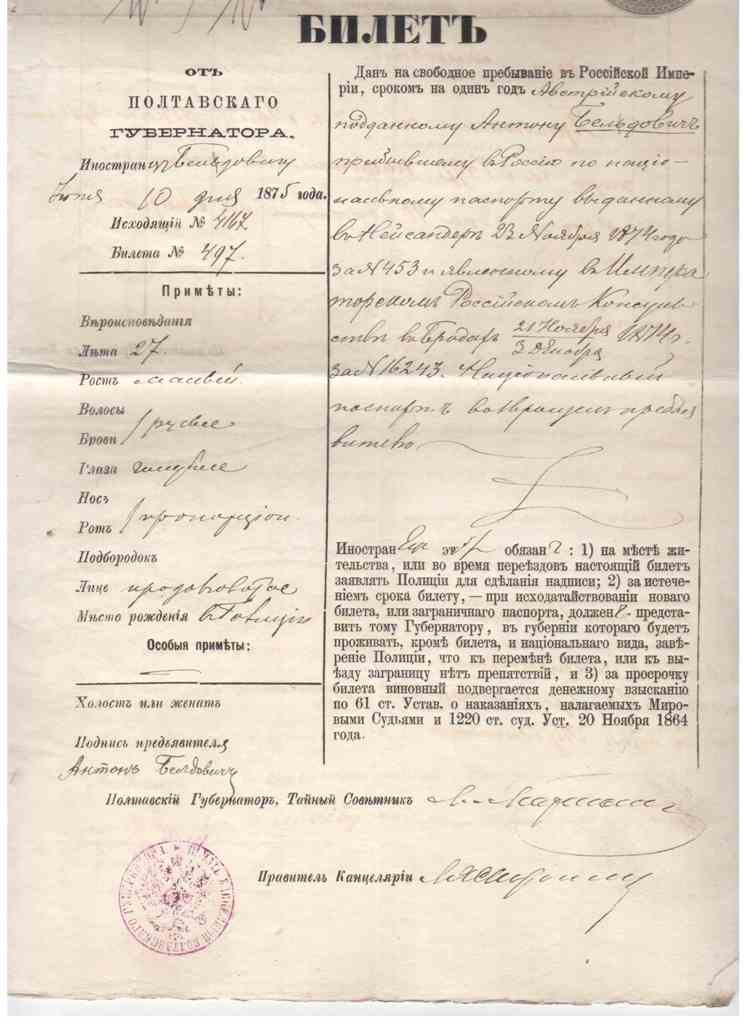 БИЛЕТЪ
ОТЪ
ПОЛТАВСКАГО
ГУБЕРНАТОРА.
Иностранцу Бельдовичу
10 дня 1875 года.
Исходящій № 4167
Билета № 497.
Примѣты:
Вѣроисповѣданія
Лѣта 27.
Ростъ малый
Волосы
Брови русые
Глаза голубые
Носъ
Ротъ пропорціон.
Подбородокъ
Лице продолговатое
Мѣсто рожденія въ Галиціи
Особыя примѣты:
Холостъ или женатъ
Подпись предъявителя
Антонъ Бельдовичъ
Данъ на свободное пребываніе въ Россійской Импе-
ріи, срокомъ на одинъ годъ Австрійскому
подданному Антону Бельдовичъ
прибывшему въ Россію по націо-
нальному паспорту выданному
23 Ноября 1874 года
за № 453 и явленному въ Импера
торскомъ Россійскомъ Консуль
ствѣ въ Бродахъ 21 Ноября 1874 г.
3 Декабря
за № 16243. Національный
паспортъ возвращенъ предъя
вителю.
Иностран обязан : 1) на мѣстѣ жи-
тельства, или во время переѣздовъ настоящій билетъ
заявлять Полиціи для сдѣланія надписи; 2) за истече-
ніемъ срока билету, — при исходатайствованіи новаго
билета, или заграничнаго паспорта, должен предста-
вить тому Губернатору, въ губерніи котораго будетъ
проживать, кромѣ билета, и національнаго вида, завѣ-
реніе Полиціи, что къ перемѣнѣ билета, или къ вы-
ѣзду заграницу нѣтъ препятствій, и 3) за просрочку
билета виновный подвергается денежному взысканію
по 61 ст. Устав. о наказаніяхъ, налагаемыхъ Миро-
выми Судьями и 1220 ст. суд. Уст. 20 Ноября 1864
года.
Полтавскій Губернаторъ, Тайный Совѣтникъ
Правитель Канцеляріи